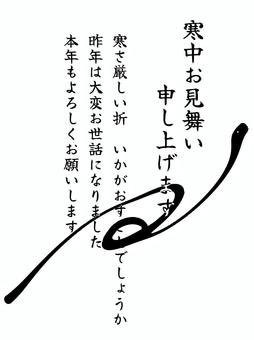 寒中お見舞い
申し上げます
寒さ厳しい折　いかがおすごしでしょうか
昨年は大変お世話になりました
本年もよろしくお願いします